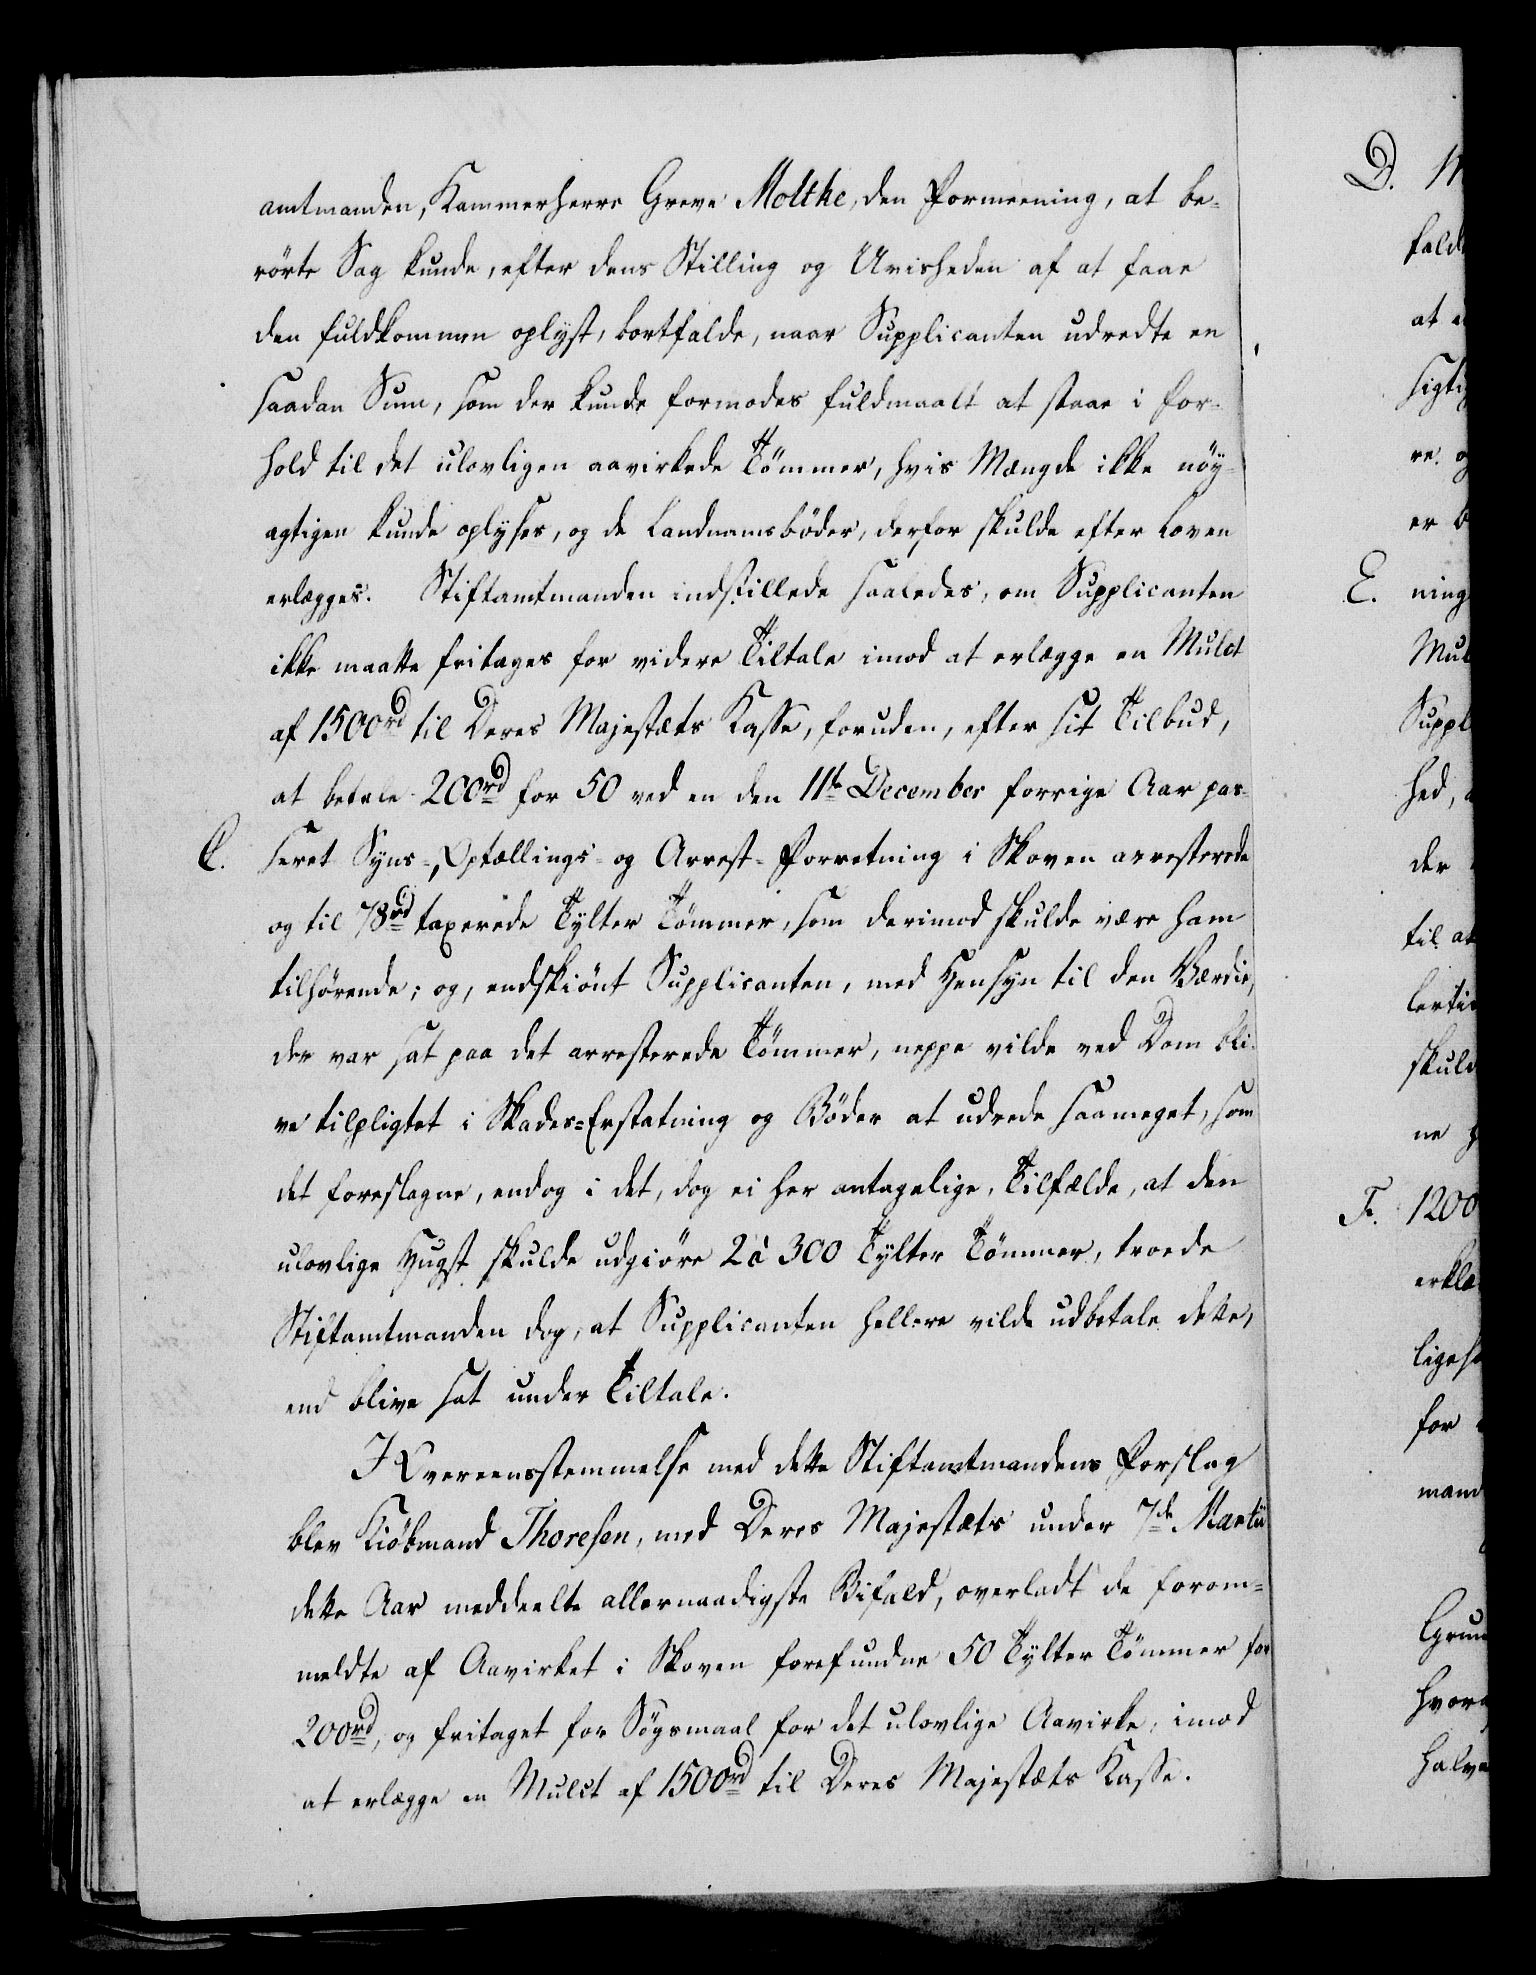 amtmanden, Kammerherre Greve Moltke, den Formeening, at be-
rörte Sag kunde, efter dens Stilling og Uvisheden af at faae
den fuldkommen oplyst, bortfalde, naar Supplicanten udredte en
saadan Sum, som der kunde formodes fuldmaalt at staae i for-
hold til det ulovligen aavirkede Tömmer, hvis Mængde ikke nöy-
agtigen kunde oplyses, og de Landnamsböder, derfor skulde efter Loven
erlægges. Stiftamtmanden indstillede saaledes, om Supplicanten
ikke maatte fritages for videre Tiltale imod at erlægge en Mulct
af 1500rd til Deres Majestæts Kasse, foruden, efter sit Tilbud,
at betale 200rd for 50 ved en den 11te December forrige Aar pas-
C. seret Syns-, Optællings- og Arrest-Forretning i Skoven arresterede
og til 78rd taxerede Tylter Tömmer, som derimod skulde være ham
tilhörende; og, endskiönt Supplicanten, med Hensyn til den Værdie,
der var sat paa det arresterede Tömmer, neppe vilde ved Dom bli-
ve tilpligtet i Skades-Erstatning og Böder at udrede saameget, som
det foreslagne, endog i det, dog ei her antagelige, Tilfælde, at den
ulovlige Hugst skulde udgiöre 2 à 300 Tylter Tömmer, troede
Stiftamtmanden dog, at Supplicanten hellere vilde udbetale dette,
end blive sat under Tiltale.
I Overeensstemmelse med dette Stiftamtmandens Forslag
blev Kiöbmand Thoresen, med Deres Majestæts under 7de Martii
dette Aar meddeelte allernaadigste Bifald, overladt de forom-
meldte af Aavirket i Skoven forefundne 50 Tylter Tömmer for
200rd, og fritaget for Sögsmaal for det ulovlige Aavirke, imod
at erlægge en Mulct af 1500rd til Deres Majestæts Kasse.
D.
at
re. og
er
E. ning
Mul
Suppl
hed,
der
til at
skuld
ne
F. 1200
erklæ
for
mand
hvor
halv